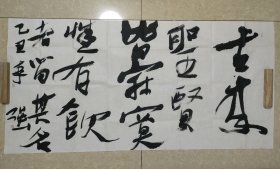 古来
聖賢
皆寂寞
惟有飲
者留其名
乙丑年
强